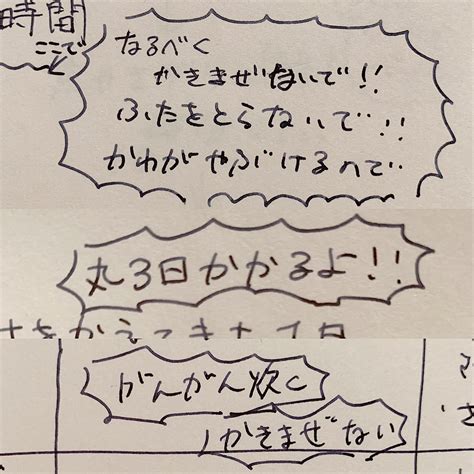 時間
ここで
なるべく
かきまぜないで!!
ふたをとらないで!!
かわがやぶけるので
丸3日かかるよ!!
がんがん炊く
かきまぜない